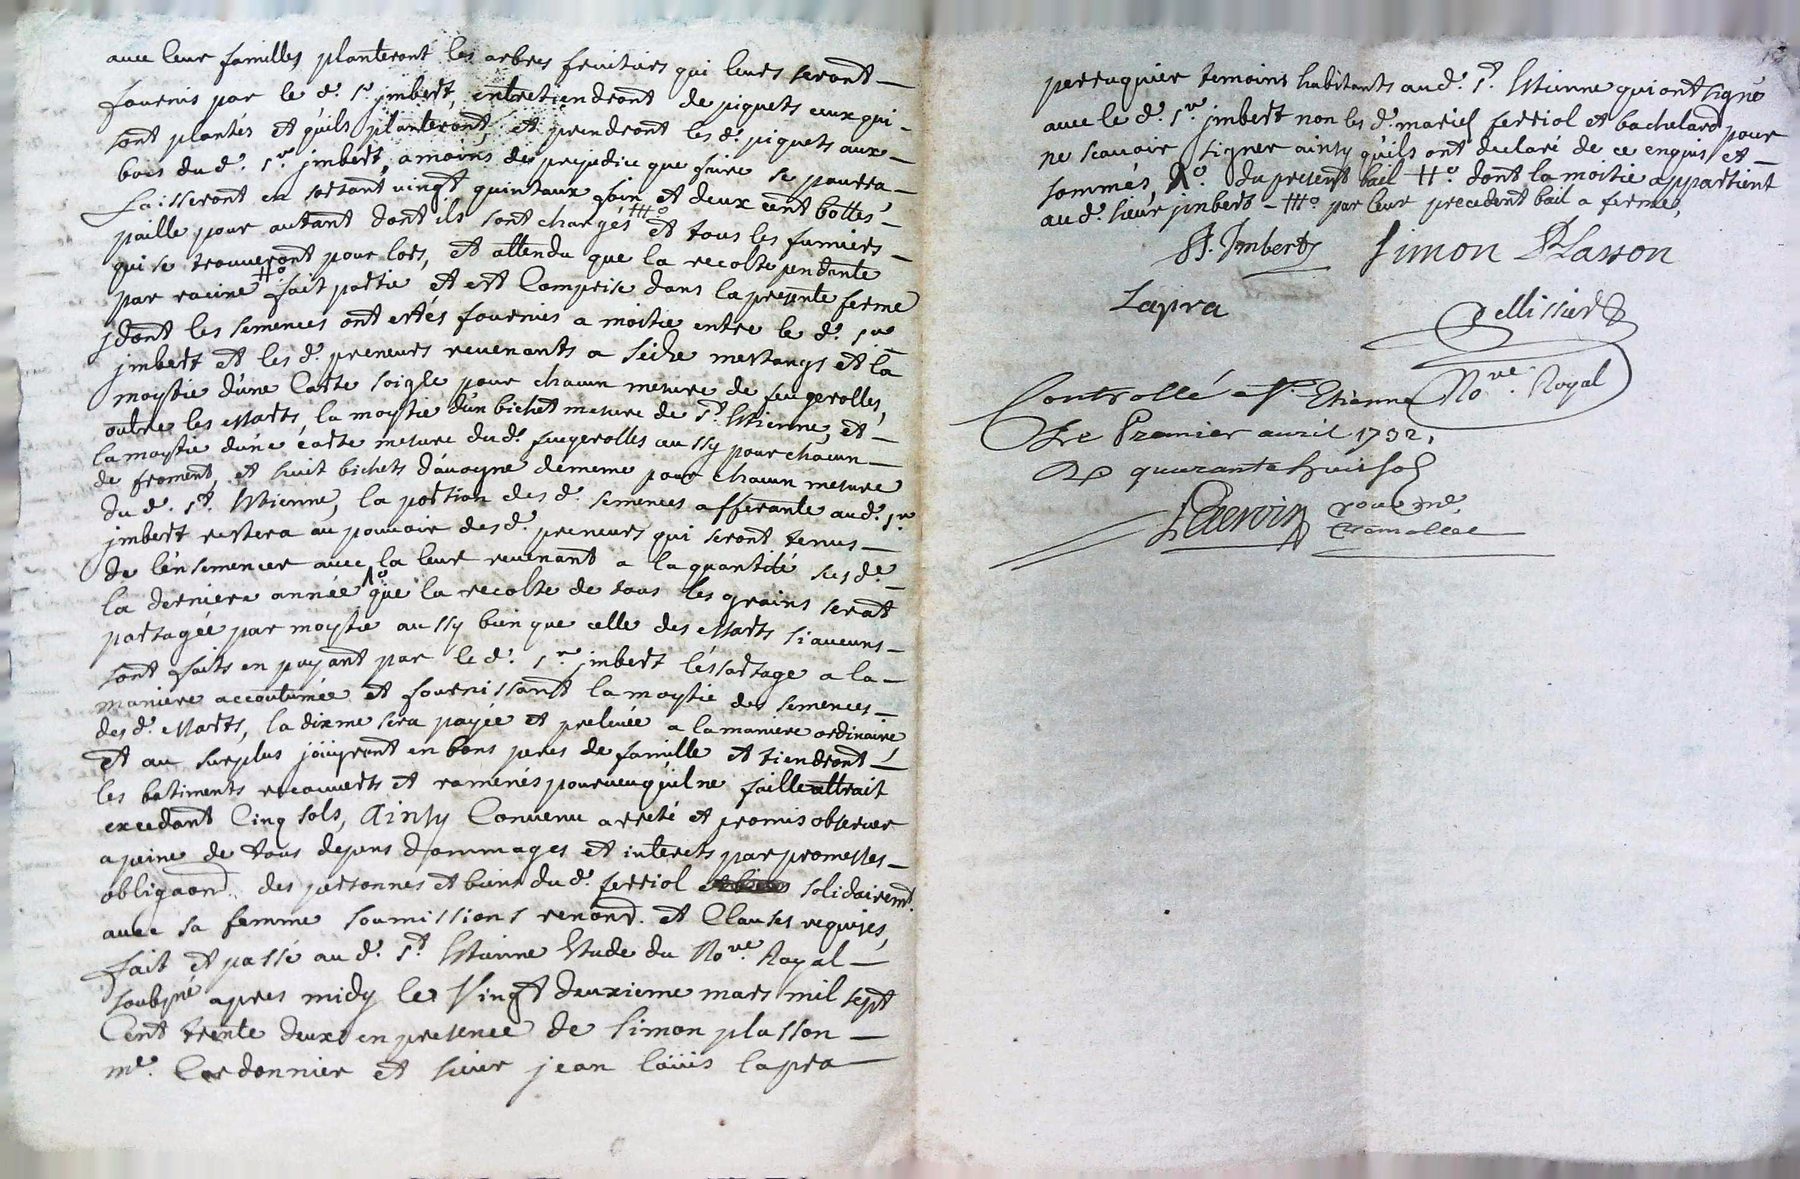 avec leur familles planteront les arbres fruitiers qui leurs seront
fournis par le d. sr. jmbert, entretiendront de piquets ceux qui
sont plantés et qu'ils planteront, et prendront les d. piquets aux
bois du d. sr. jmbert, a moins de prejudice que faire se pourra
Laisseront en sortant vingt quintaux foin et deux cent bottes
paille pour autant dont ils sont chargés #o et tous les fumiers
qui se trouveront pour lors, et attendu que la recolte pendante
par racine #o fait partie et est Comprise dans la presente ferme
dont les semences ont estés fournies a moitie entre le d. sr.
jmbert et les d. preneurs revenants a seize mestangs et la
moytie d'une Carte soigle pour chacun mesure de feugerolles,
outre les essarts, la moytie d'un bichet mesure de st. Estienne, et
la moytie d'une carte mesure du d. feugerolles aussy pour chacun
de froment, et huit bichets d'avoyne de meme pour chacun mesure
du d. st. Estienne, la portion des d. semences afferante au d. sr.
jmbert restera au pouvoir des d. preneurs qui seront tenus
de l'ensemencer avec la leur revenant a la quantité sus d.
la derniere année que la recolte de tous les grains serat
partagée par moytie aussy bien que celle des essarts si aucuns
sont faits en payant par le d. sr. jmbert l'essartage a la
maniere accoutumée et fournissant la moytie des semences
des d. essarts, la dixme sera payée et prelevée a la maniere ordinaire
et au surplus joüyront en bons peres de famille et tiendront
les batiments recouverts et ramenés pourveu qu'il ne faille attrait
excedant Cinq sols, Ainsy Convenu arreté et promis observer
a peine de tous depens dommages et interets par promesses
obligaond. des personnes et biens du d. ferriol solidairemt.
avec sa femme soumissions renond. et Clauses requises,
fait et passé au d. st. Estienne Etude du Nore. Royal
soubsné apres midy le Vingt deuxieme mars mil sept
Cent trente deux en presence de simon plasson
me. Cordonnier et sieur jean loüis lapra
perruquier temoins habitants au d. st. Estienne qui ont signé
avec le d. sr. jmbert non les d. mariés ferriol et bachelard pour
ne scavoir signer ainsy qu'ils ont declaré de ce enquis et
sommés, du present bail #o dont la moitie appartient
au d. sieur jmbert - #o par leur precedent bail a ferme,
Jmbert Simon Plasson
Lapra Pellissier
Nore. Royal
Controllé a St. Etienne
Le Premier avril 1732,
R quarante huit sols